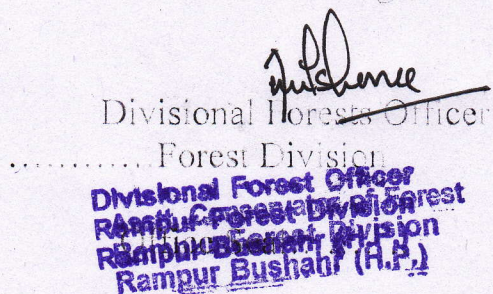 Divisional Forests Officer
............Forest Division
Divisional Forest Officer
Rampur Forest Division
Rampur Bushahr (H.P.)
Asstt. Conservator of Forest
Forest Division
Rampur Bushahr (H.P.)